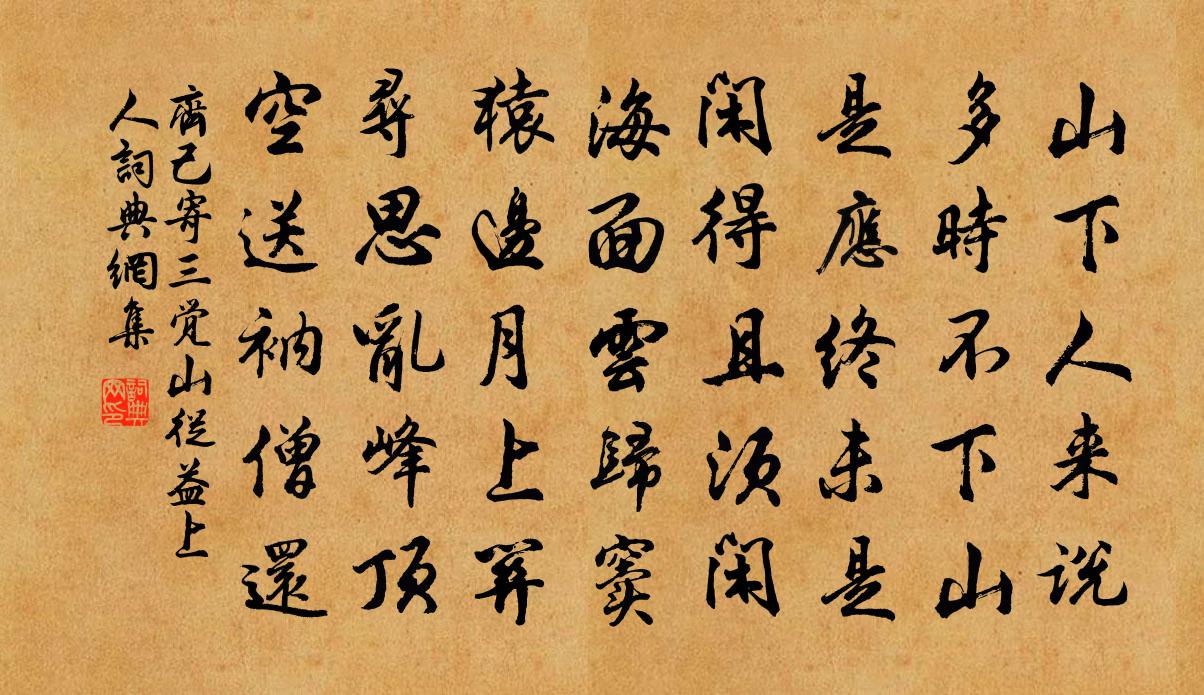 山下人来説
多時不下山
是應终未是
閑得且須閑
海面雲歸竇
猿邊月上关
尋思亂峰頂
空送衲僧還
齊己寄三覚山從益上
人詞典網集
詞典网印